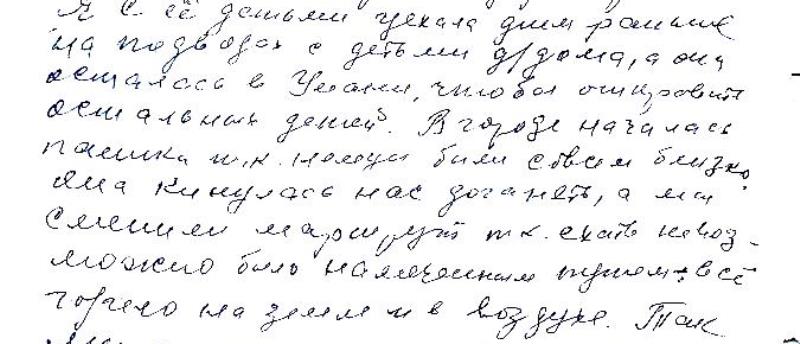 Я с её детьми уехала днем раньше
на подводах с детьми д/дома, а она
осталась в Умани, чтобы отправить
остальных детей. В городе началась
паника т.к. немцы были совсем близко.
Яна кинулась нас догонять, а мы
сменили маршрут т.к. ехать невоз-
можно было намеченным путем: всё
горело на земле и в воздухе. Так